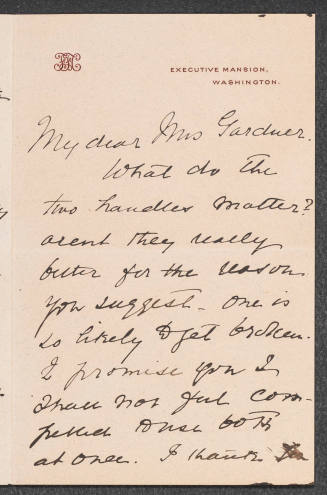 EXECUTIVE MANSION,
WASHINGTON.
My dear Mrs Gardner.
What do the
two handles matter?
arent they really
better for the reason
you suggest - one is
so likely to get broken.
I promise you I
shall not feel com-
pelled to use both
at once. I thank you